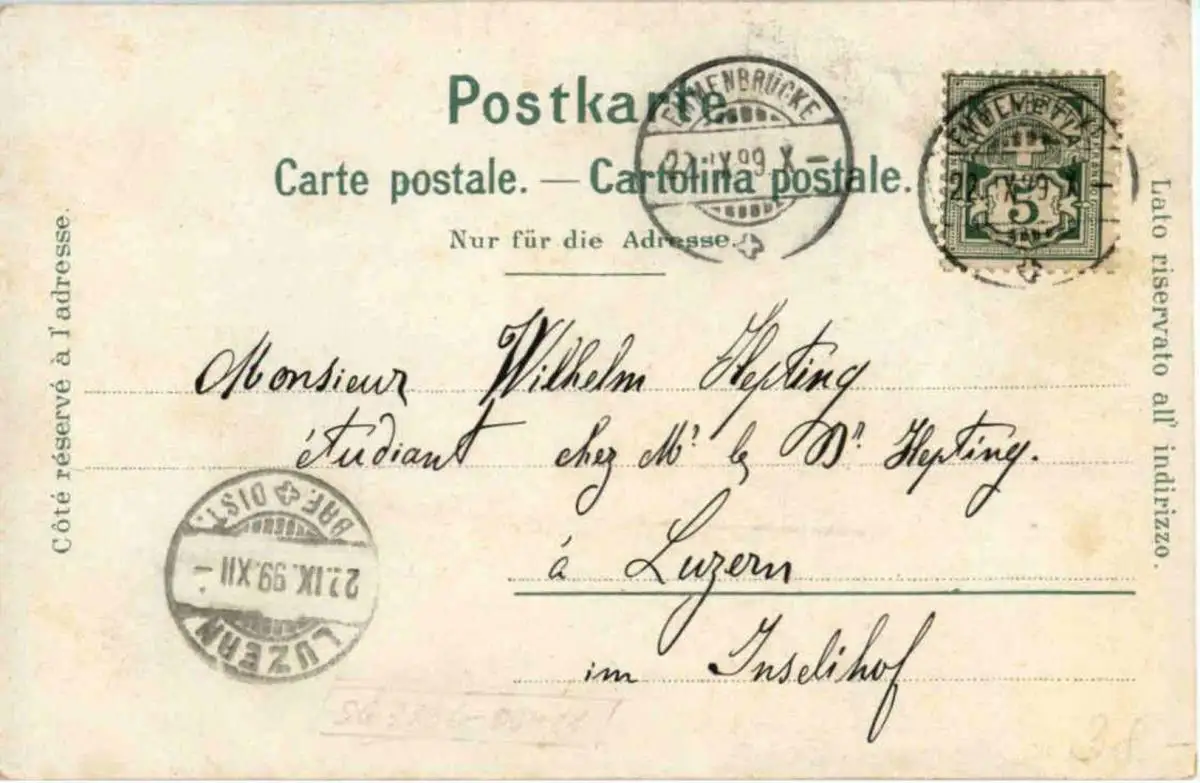 Postkarte
Carte postale. — Cartolina postale.
Nur für die Adresse.
Côté réservé à l'adresse.
Lato riservato all' indirizzo.
EMMENBRÜCKE
22. IX 99. X –
HELVETIA
22. IX 99. X –
5
Monsieur Wilhelm Hepting
étudiant chez Mr le Dr Hepting.
à Luzern
im Inselihof
BRF. DIST.
22. IX. 99. XII –
LUZERN